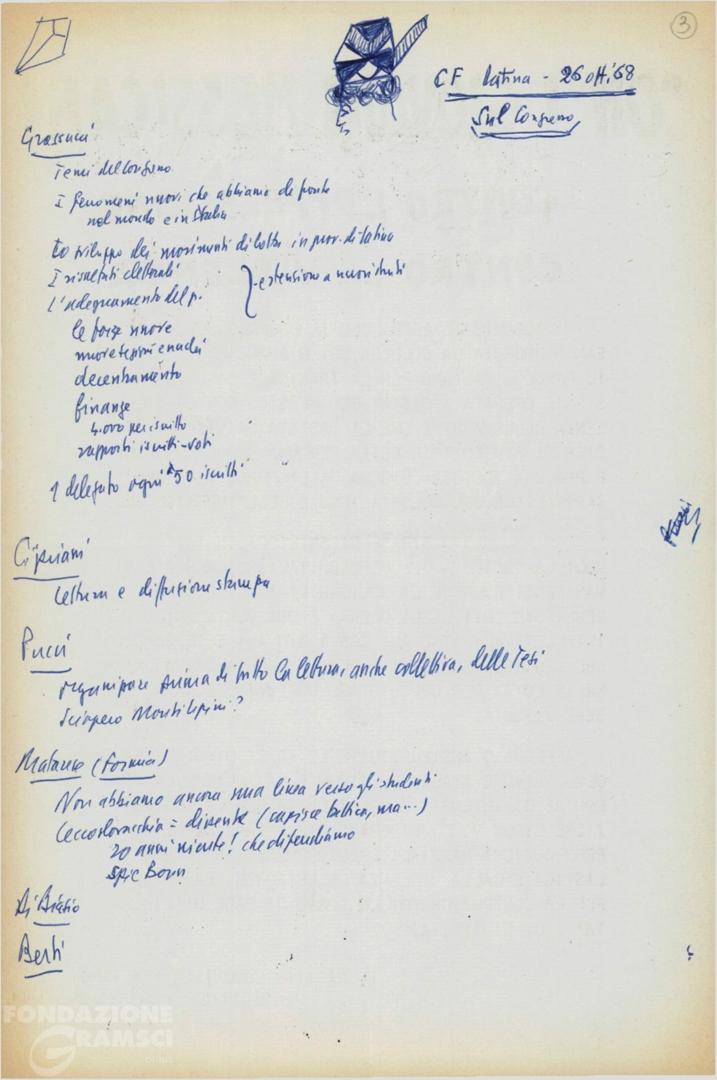 3
CF Latina - 26 ott. '68
Sul Congresso
Grassucci
Temi del Congresso
I fenomeni nuovi che abbiamo di fronte
nel mondo e in Italia
Lo sviluppo dei movimenti di lotta in prov. di Latina
I risultati elettorali
L'adeguamento del p.
- estensione a nuovi strati
le forze nuove
nuove sezioni e nuclei
decentramento
finanze
4.000 per iscritto
rapporti iscritti-voti
1 delegato ogni 50 iscritti
Cipriani
Lettura e diffusione stampa
Pucci
organizzare prima di tutto la lettura, anche collettiva, delle Tesi
Sciopero Monti Lepini?
(Formia)
Non abbiamo ancora una linea verso gli studenti
Cecoslovacchia = dissente (capisce tattica, ma...)
20 anni niente! che difendiamo
Di Biasio
Berti
FONDAZIONE
GRAMSCI